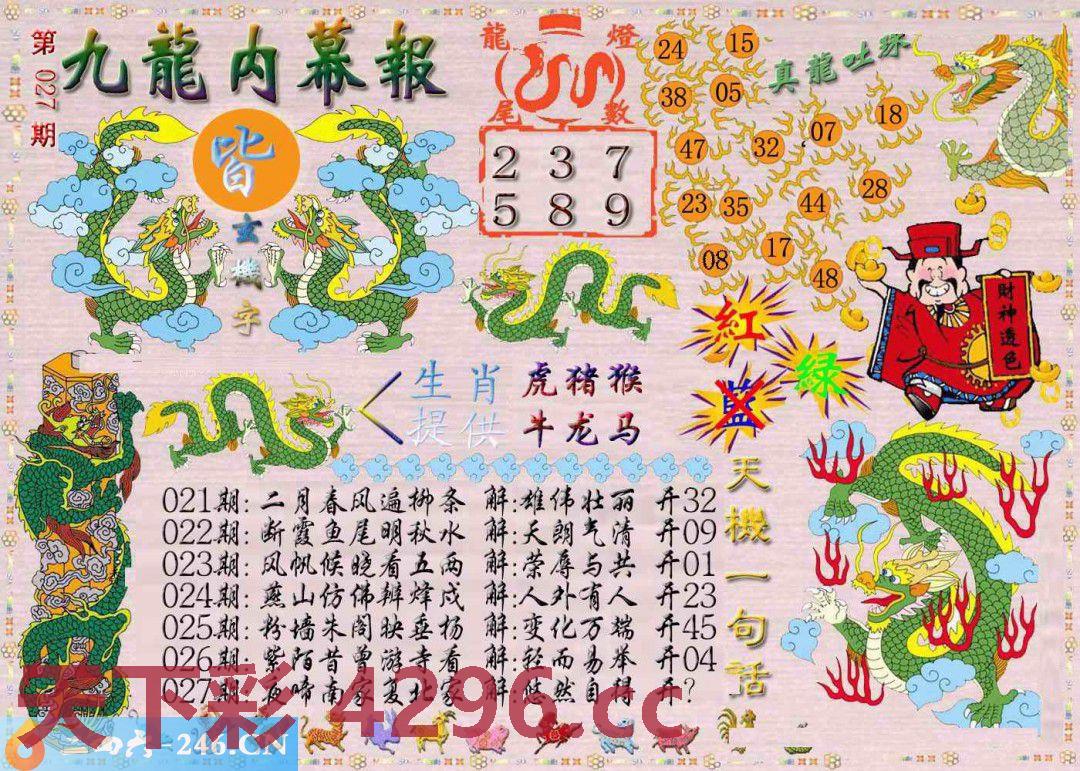 第027期
九龍内幕報
皆
玄機字
龍尾燈數
2 3 7
5 8 9
真龍吐珠
24 15
38 05
18
47 32 07
23 35 44 28
08 17 48
財神透色
紅
绿
藍
生肖 虎猪猴
提供 牛龙马
天機一句話
021期:二月春风遍柳条 解:雄伟壮丽 开32
022期:断霞鱼尾明秋水 解:天朗气清 开09
023期:风帆候晓看五两 解:荣辱与共 开01
024期:燕山仿佛辩烽戍 解:人外有人 开23
025期:粉墙朱阁映垂杨 解:变化万端 开45
026期:紫陌昔曾游寺看 解:轻而易举 开04
027期:夜啼南家复北家 解:悠然自得 开?
天下彩 4296.cc
246.CN